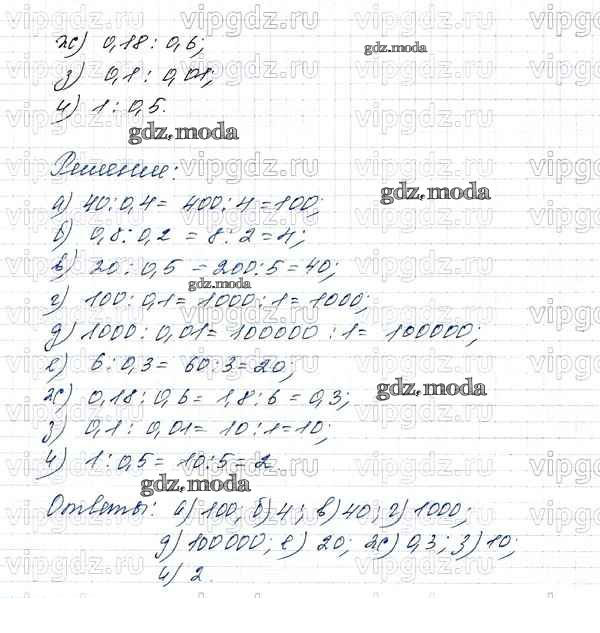 ж) 0,18 : 0,6;
gdz.moda
з) 0,1 : 0,01;
и) 1 : 0,5.
gdz.moda
Решение:
а) 40:0,4= 400:4=100;
gdz.moda
б) 0,8:0,2 = 8:2=4;
в) 20:0,5 = 200:5=40;
gdz.moda
г) 100:0,1= 1000:1=1000;
д) 1000:0,01= 100000:1= 100000;
е) 6:0,3= 60:3=20;
ж) 0,18:0,6= 1,8:6=0,3;
gdz.moda
з) 0,1:0,01= 10:1=10;
и) 1:0,5= 10:5=2.
gdz.moda
Ответы: а) 100; б) 4; в) 40; г) 1000;
д) 100000; е) 20; ж) 0,3; з) 10;
и) 2.